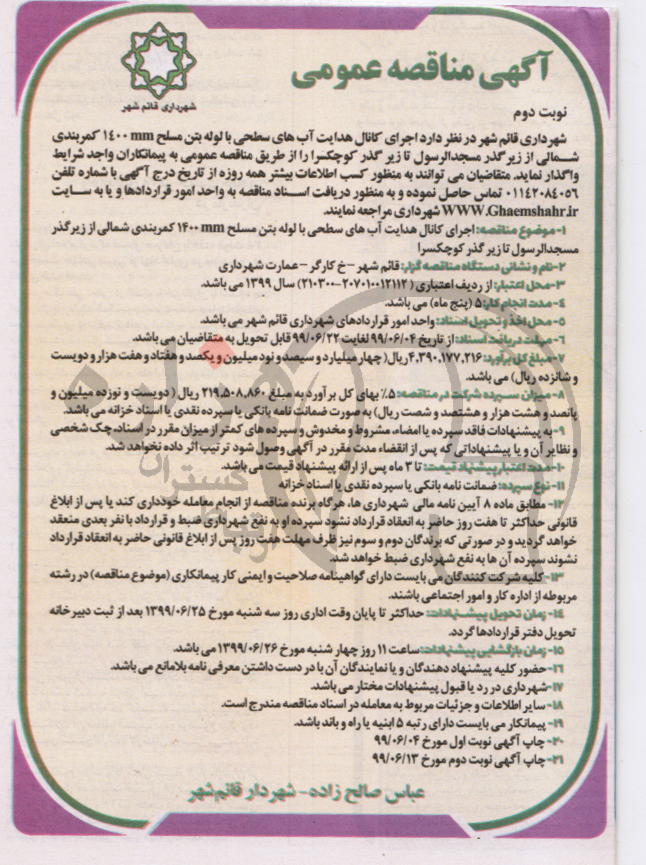 آگهی مناقصه عمومی
شهرداری قائم شهر
نوبت دوم
شهرداری قائم شهر در نظر دارد اجرای کانال هدایت آب های سطحی با لوله بتن مسلح ۱۴۰۰ mm کمربندی
شمالی از زیر گذر مسجدالرسول تا زیر گذر کوچکسرا را از طریق مناقصه عمومی به پیمانکاران واجد شرایط
واگذار نماید. متقاضیان می توانند به منظور کسب اطلاعات بیشتر همه روزه از تاریخ درج آگهی با شماره تلفن
۰۱۱۴۲۰۸۴۰۵۶ تماس حاصل نموده و به منظور دریافت اسناد مناقصه به واحد امور قراردادها و یا به سایت
WWW.Ghaemshahr.ir شهرداری مراجعه نمایند.
۱-موضوع مناقصه: اجرای کانال هدایت آب های سطحی با لوله بتن مسلح ۱۴۰۰ mm کمربندی شمالی از زیر گذر
مسجدالرسول تا زیر گذر کوچکسرا
۲-نام و نشانی دستگاه مناقصه گزار: قائم شهر -خ کارگر -عمارت شهرداری
۳-محل اعتبار: از ردیف اعتباری (۲۰۷۰۱۰۰۱۲۱۱۲-۲۱۰۳۰۰) سال ۱۳۹۹ می باشد.
۴-مدت انجام کار: ۵ (پنج ماه) می باشد.
۵-محل اخذ و تحویل اسناد: واحد امور قراردادهای شهرداری قائم شهر می باشد.
۶-مهلت دریافت اسناد: از تاریخ ۹۹/۰۶/۰۴ لغایت ۹۹/۰۶/۲۲ قابل تحویل به متقاضیان می باشد.
۷-مبلغ کل برآورد: ۴،۳۹۰،۱۷۷،۲۱۶ ریال( چهار میلیارد و سیصد و نود میلیون و یکصد و هفتاد و هفت هزار و دویست
و شانزده ریال) می باشد.
۸-میزان سپرده شرکت در مناقصه: ۵٪ بهای کل برآورد به مبلغ ۲۱۹،۵۰۸،۸۶۰ ریال ( دویست و نوزده میلیون و
پانصد و هشت هزار و هشتصد و شصت ریال) به صورت ضمانت نامه بانکی یا سپرده نقدی یا اسناد خزانه می باشد.
۹-به پیشنهادات فاقد سپرده یا امضاء، مشروط و مخدوش و سپرده های کمتر از میزان مقرر در اسناد، چک شخصی
و نظایر آن و یا پیشنهاداتی که پس از انقضاء مدت مقرر در آگهی وصول شود ترتیب اثر داده نخواهد شد.
۱۰-مدت اعتبار پیشنهاد قیمت: تا ۳ ماه پس از ارائه پیشنهاد قیمت می باشد.
۱۱-نوع سپرده: ضمانت نامه بانکی یا سپرده نقدی یا اسناد خزانه
۱۲-مطابق ماده ۸ آیین نامه مالی شهرداری ها، هرگاه برنده مناقصه از انجام معامله خودداری کند یا پس از ابلاغ
قانونی حداکثر تا هفت روز حاضر به انعقاد قرارداد نشود سپرده او به نفع شهرداری ضبط و قرارداد با نفر بعدی منعقد
خواهد گردید و در صورتی که برندگان دوم و سوم نیز ظرف مهلت هفت روز پس از ابلاغ قانونی حاضر به انعقاد قرارداد
نشوند سپرده آن ها به نفع شهرداری ضبط خواهد شد.
۱۳-کلیه شرکت کنندگان می بایست دارای گواهینامه صلاحیت و ایمنی کار پیمانکاری (موضوع مناقصه) در رشته
مربوطه از اداره کار و امور اجتماعی باشند.
۱۴-زمان تحویل پیشنهادات: حداکثر تا پایان وقت اداری روز سه شنبه مورخ ۱۳۹۹/۰۶/۲۵ بعد از ثبت دبیرخانه
تحویل دفتر قراردادها گردد.
۱۵-زمان بازگشایی پیشنهادات: ساعت ۱۱ روز چهار شنبه مورخ ۱۳۹۹/۰۶/۲۶ می باشد.
۱۶-حضور کلیه پیشنهاد دهندگان و یا نمایندگان آن با در دست داشتن معرفی نامه بلامانع می باشد.
۱۷-شهرداری در رد یا قبول پیشنهادات مختار می باشد.
۱۸-سایر اطلاعات و جزئیات مربوط به معامله در اسناد مناقصه مندرج است.
۱۹-پیمانکار می بایست دارای رتبه ۵ ابنیه یا راه و باند باشد.
۲۰-چاپ آگهی نوبت اول مورخ ۹۹/۰۶/۰۴
۲۱-چاپ آگهی نوبت دوم مورخ ۹۹/۰۶/۱۳
عباس صالح زاده- شهردار قائم‌شهر